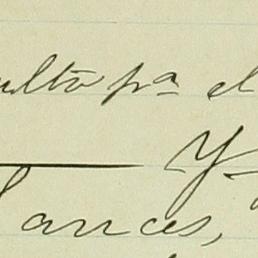 ulto pª el
Y
lances,